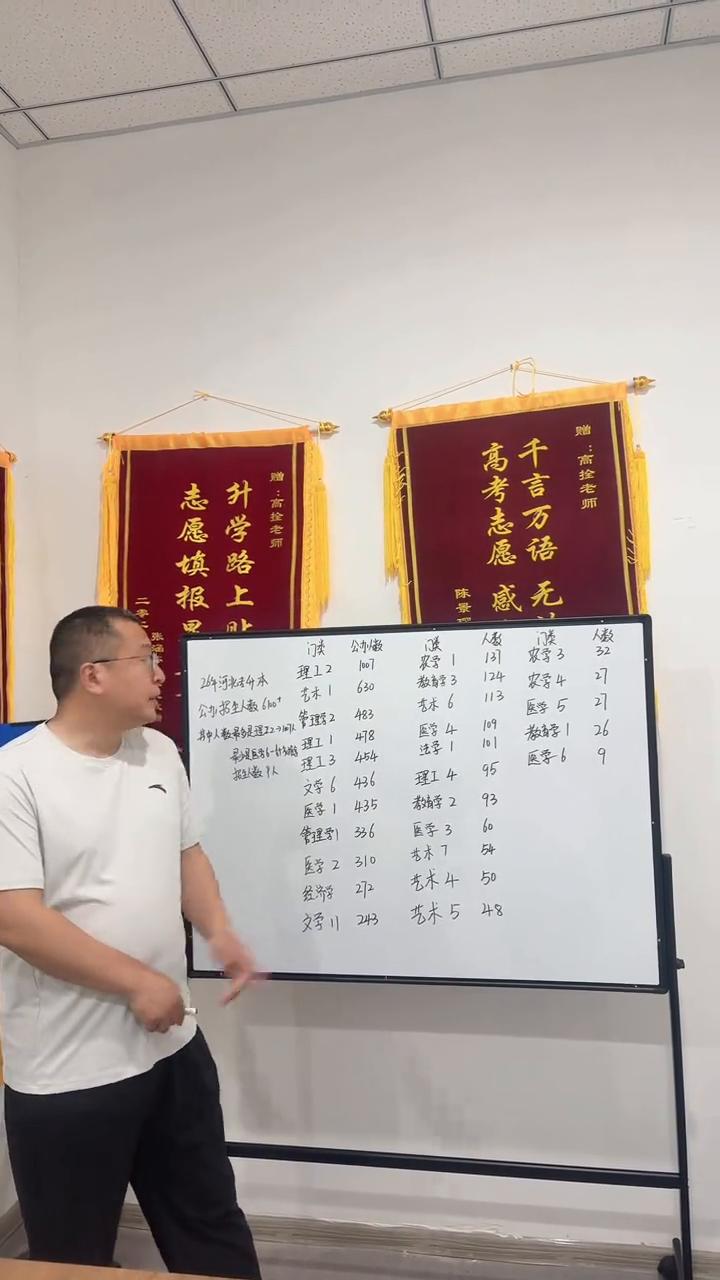 赠：高拴老师
升学路上
志愿填报
二零
张
赠：高拴老师
千言万语 无
高考志愿 感
陈景
26年河北专升本
公办招生人数 6100+
其中人数最多是理工2→1007人
最少是医学6
招生人数 9人
门类 公办人数
理工2 1007
艺术1 630
管理学2 483
理工1 478
理工3 454
文学6 436
医学1 435
管理学1 336
医学2 310
经济学 272
文学11 243
门类 人数
农学1 137
教育学3 124
艺术6 113
医学4 109
法学1 101
理工4 95
教育学2 93
医学3 60
艺术7 54
艺术4 50
艺术5 48
门类 人数
农学3 32
农学4 27
医学5 27
教育学1 26
医学6 9